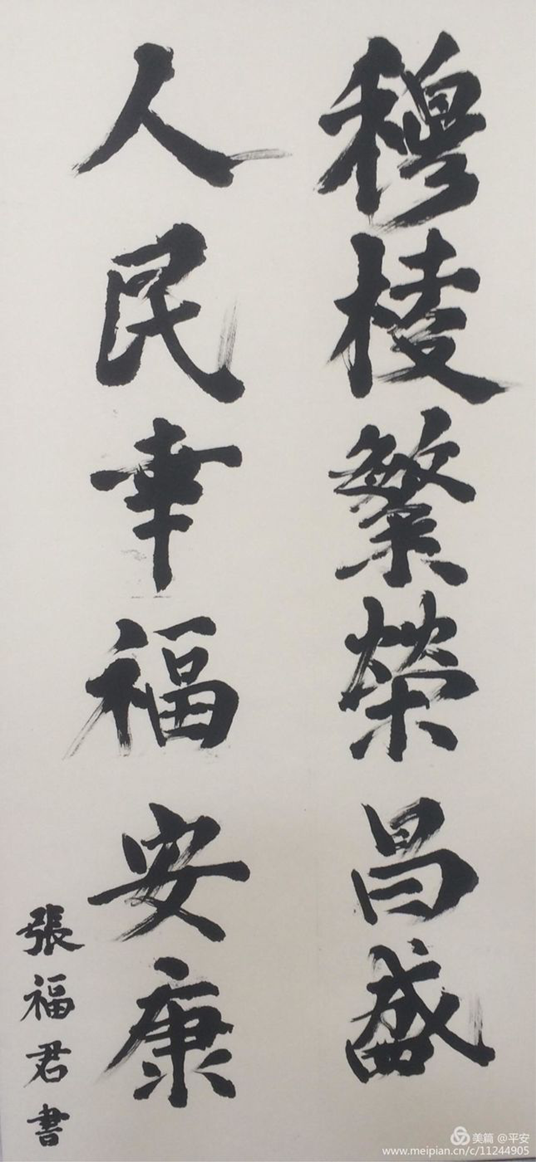 穆棱繁荣昌盛
人民幸福安康
張福君書
美篇 @平安
www.meipian.cn/c/11244905